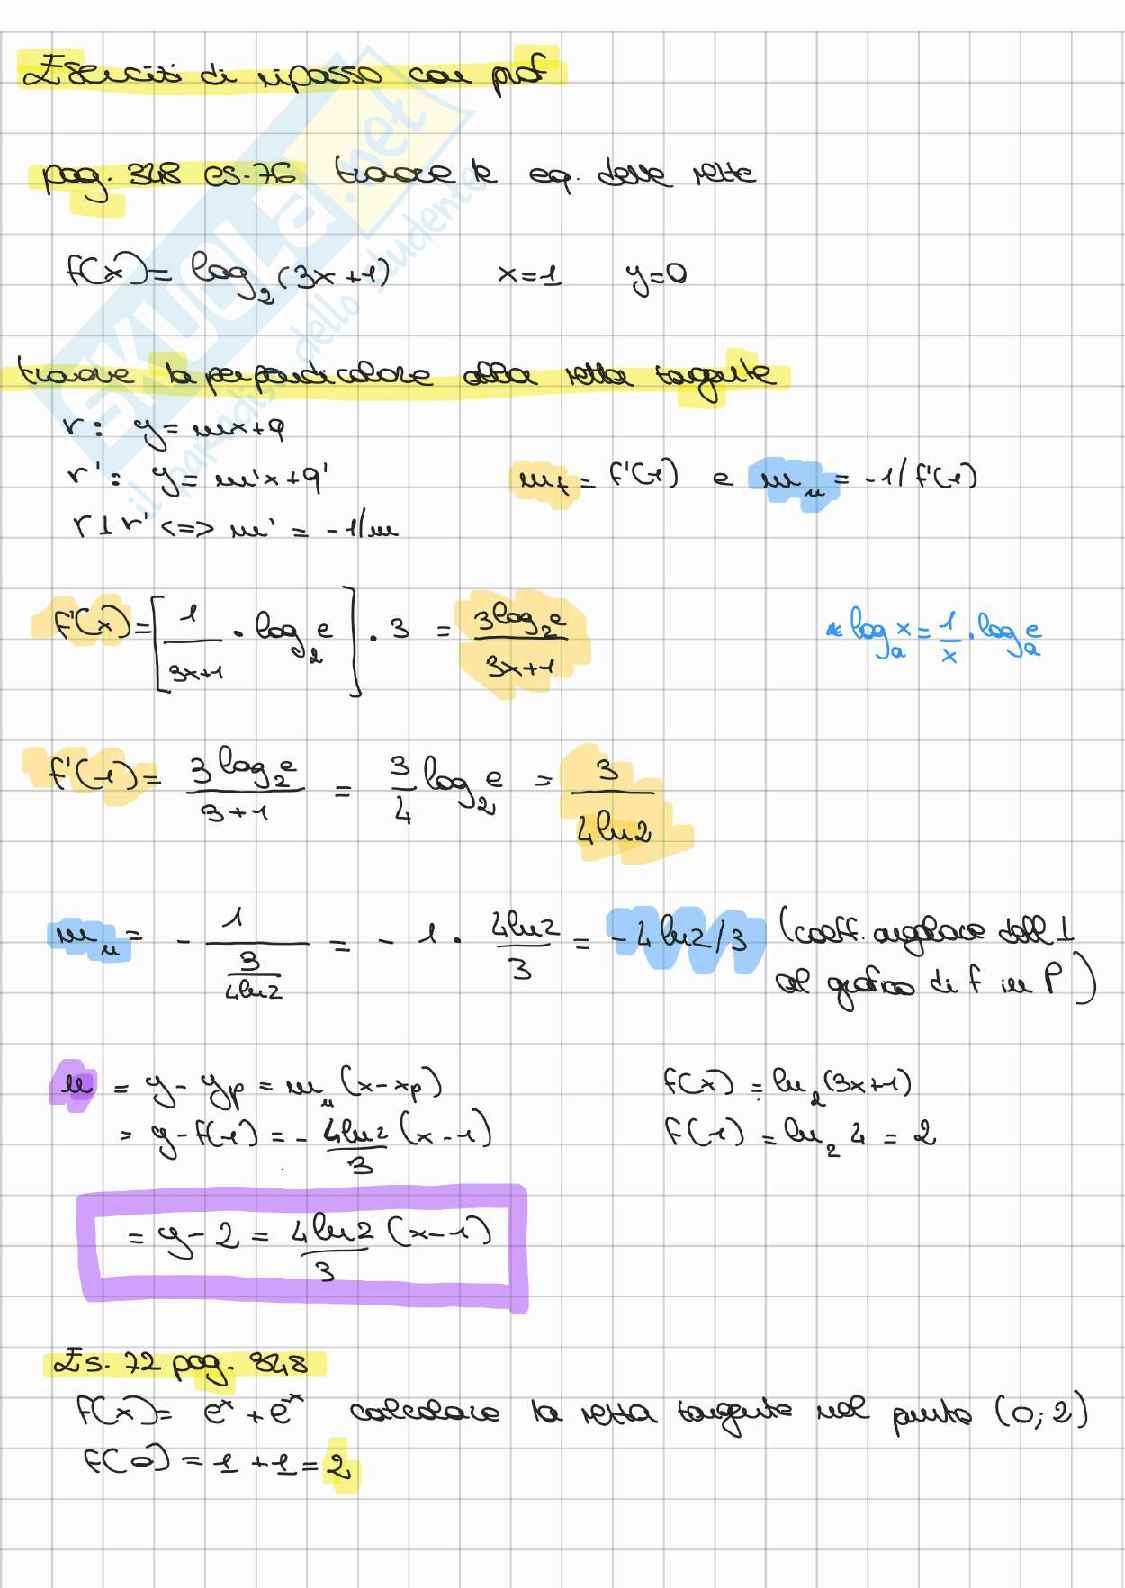 Esercizi di ripasso con prof
pag. 348 es. 76 trovare le eq. delle rette
f(x) = log₂(3x+1) x=1 y=0
trovare la perpendicolare alla retta tangente
r: y = mx+q
r': y = m'x+q'
m_t = f'(1) e m_n = -1/f'(1)
r ⊥ r' <=> m' = -1/m
f'(x) = [1/(3x+1) · log₂e] · 3 = 3log₂e/(3x+1)
* logₐx = 1/x · logₐe
f'(1) = 3log₂e/(3+1) = 3/4 log₂e = 3/(4ln2)
m_n = - 1/(3/(4ln2)) = - 1 · 4ln2/3 = -4ln2/3 (coeff. angolare dell'⊥
al grafico di f in P)
n = y - yp = m_n (x-xp)
f(x) = ln₂(3x+1)
= y-f(1) = - 4ln2/3 (x-1)
f(1) = ln₂ 4 = 2
= y-2 = 4ln2/3 (x-1)
Es. 72 pag. 848
f(x) = eˣ + e⁻ˣ calcolare la retta tangente nel punto (0; 2)
f(0) = 1 + 1 = 2
SKUOLA.net
il paradiso dello studente